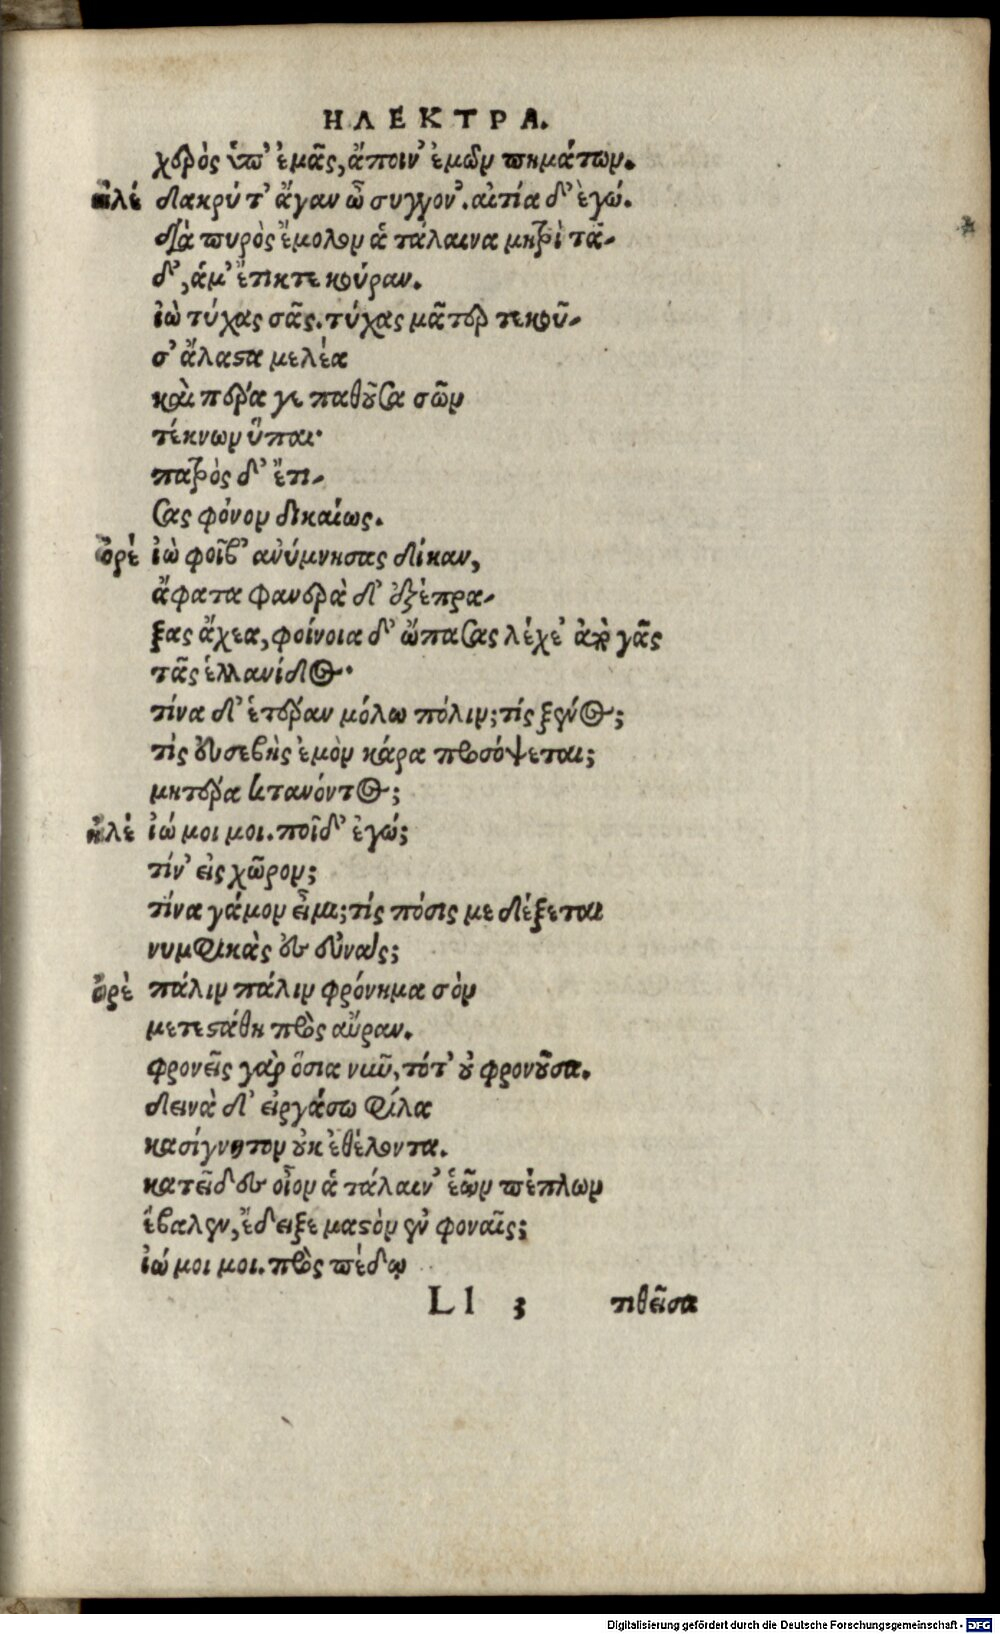 ΗΛΕΚΤΡΑ.
χερὸς ὑπ' ἐμᾶς, ἄποιν' ἐμῶν πημάτων.
ἠλέ δακρύτ' ἄγαν ὦ σύγγον'. αἰτία δ' ἐγώ.
διὰ πυρὸς ἔμολον ἁ τάλαινα μητρὶ τᾶ-
δ', ἅμ' ἔτικτε κούραν.
ἰὼ τύχας σᾶς. τύχας μᾶτερ τεκοῦ-
σ' ἄλαστα μελέα
καὶ πέρα γε παθοῦσα σῶν
τέκνων ὕπαι·
πατρὸς δ' ἔτι-
σας φόνον δικαίως.
ὀρέ ἰὼ φοῖβ' ἀνύμνησας δίκαν,
ἄφατα φανερὰ δ' ἐξέπρα-
ξας ἄχεα, φοίνοια δ' ὤπασας λέχε' ἀπὸ γᾶς
τᾶς ἑλλανίδος·
τίνα δ' ἑτέραν μόλω πόλιν; τίς ξένος;
τίς εὐσεβὴς ἐμὸν κάρα προσόψεται;
μητέρα κτανόντος;
ἠλέ ἰώ μοι μοι. ποῖ δ' ἐγώ;
τίν' εἰς χῶρον;
τίνα γάμον εἶμι; τίς πόσις με δέξεται
νυμφικὰς ἐς εὐνάς;
ὀρέ πάλιν πάλιν φρόνημα σὸν
μετεστάθη πρὸς αὔραν.
φρονεῖς γὰρ ὅσια νῦν, τότ' οὐ φρονοῦσα.
δεινὰ δ' εἰργάσω φίλα
κασίγνητον οὐκ ἐθέλοντα.
κατεῖδες οἷον ἁ τάλαιν' ἑῶν πέπλων
ἔβαλεν, ἔδειξε μαστὸν ἐν φοναῖς;
ἰώ μοι μοι. πρὸς πέδῳ
Ll 3 τιθεῖσα
Digitalisierung gefördert durch die Deutsche Forschungsgemeinschaft - DFG